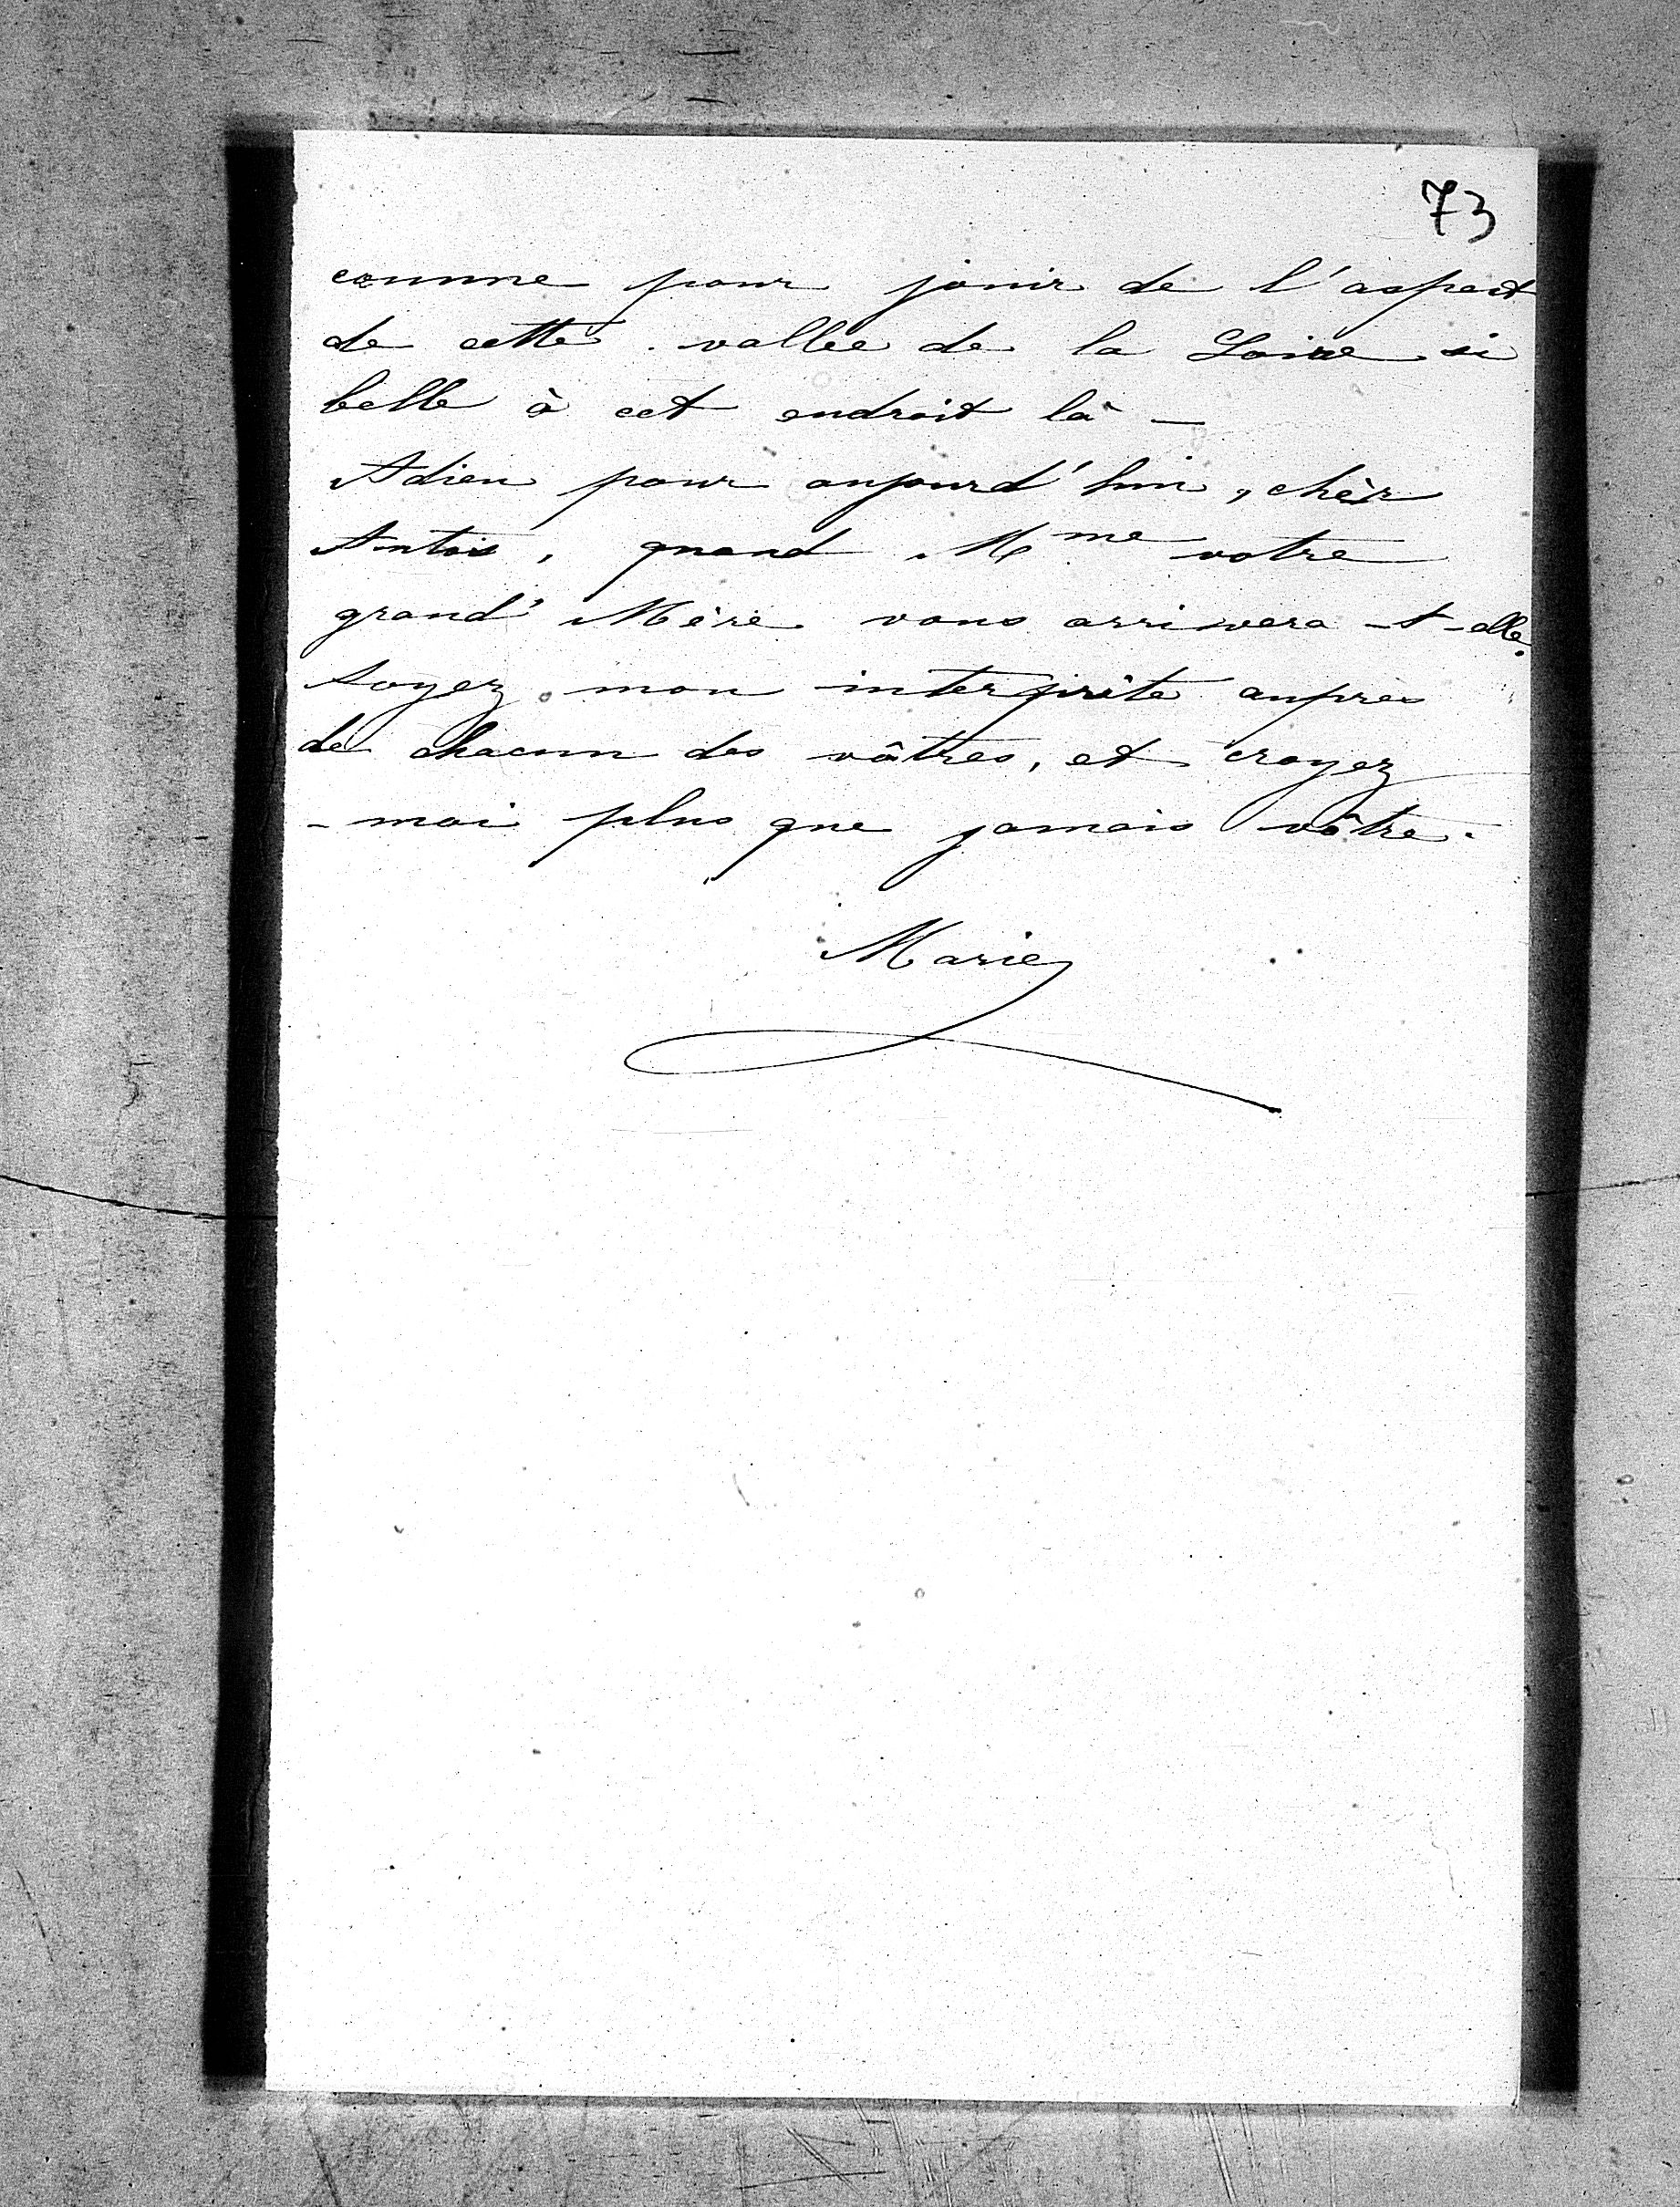 73
comme pour jouir de l'aspect
de cette vallée de la Loire si
belle à cet endroit là —
Adieu pour aujourd'hui, chèr
Antoix, quand Mme votre
grand' Mère vous arrivera-t-elle.
Soyez mon interprète auprès
de chacun des vôtres, et croyez
-moi plus que jamais vôtre.
Marie